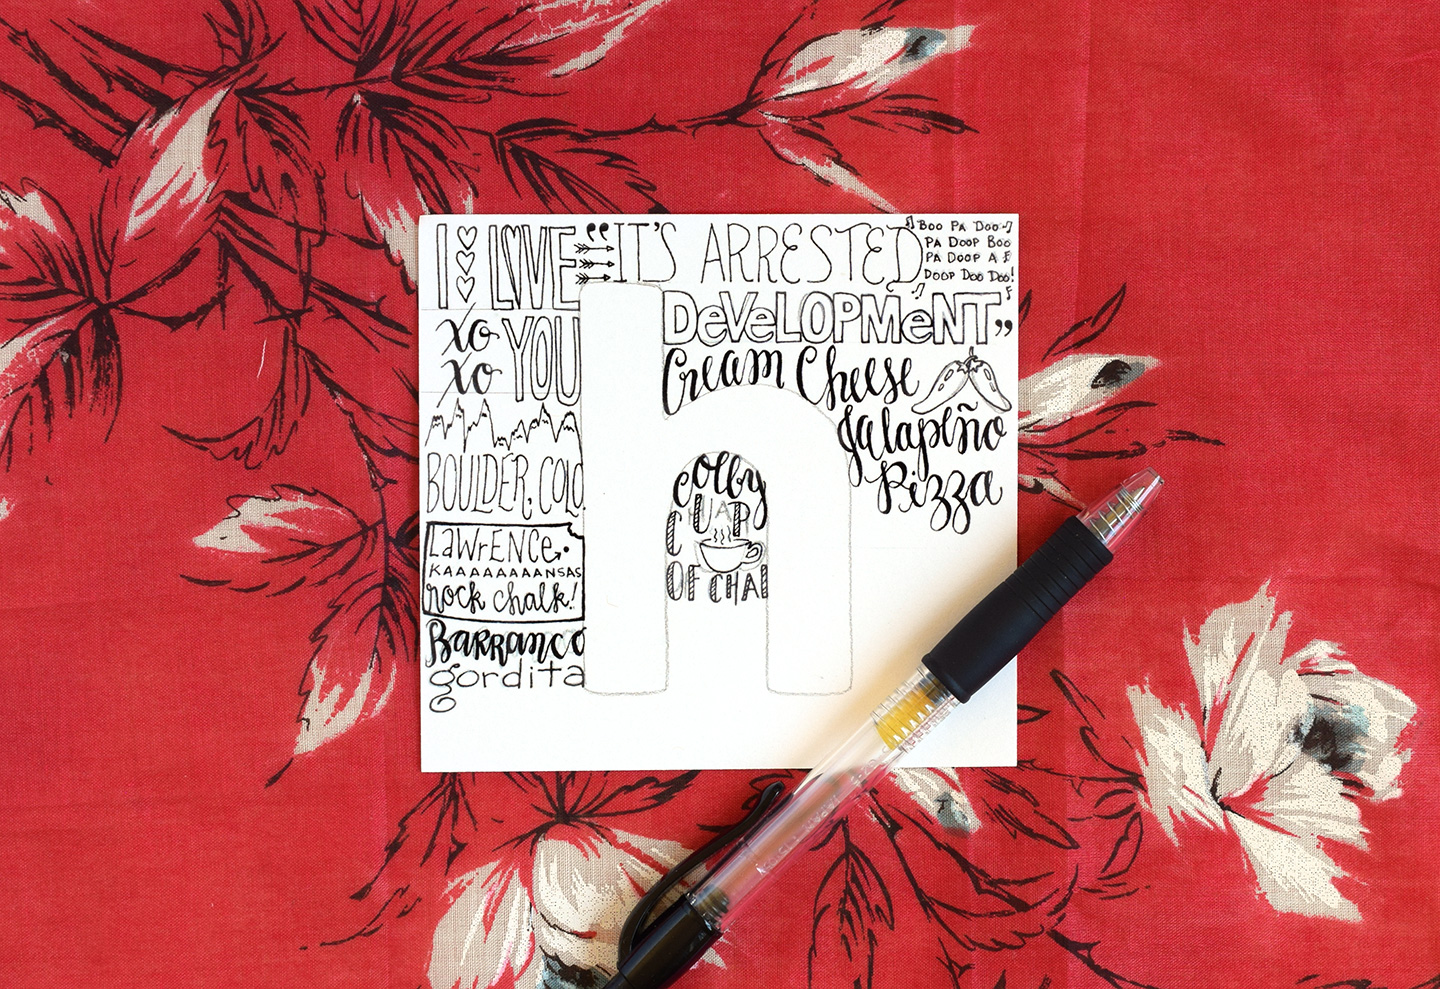 I LOVE
XO YOU
XO
BOULDER, COLO.
LAWrENCE,
KAAAAAAAANSAS
rock chalk!
BARRANCO
gordita
"IT'S ARRESTED
DeVeLOPMeNT"
BOO PA DOO
PA DOOP BOO
PA DOOP A
DOOP DOO DOO!
Cream Cheese
Jalapeño
Pizza
h
Colby
CUP
OF CHAI